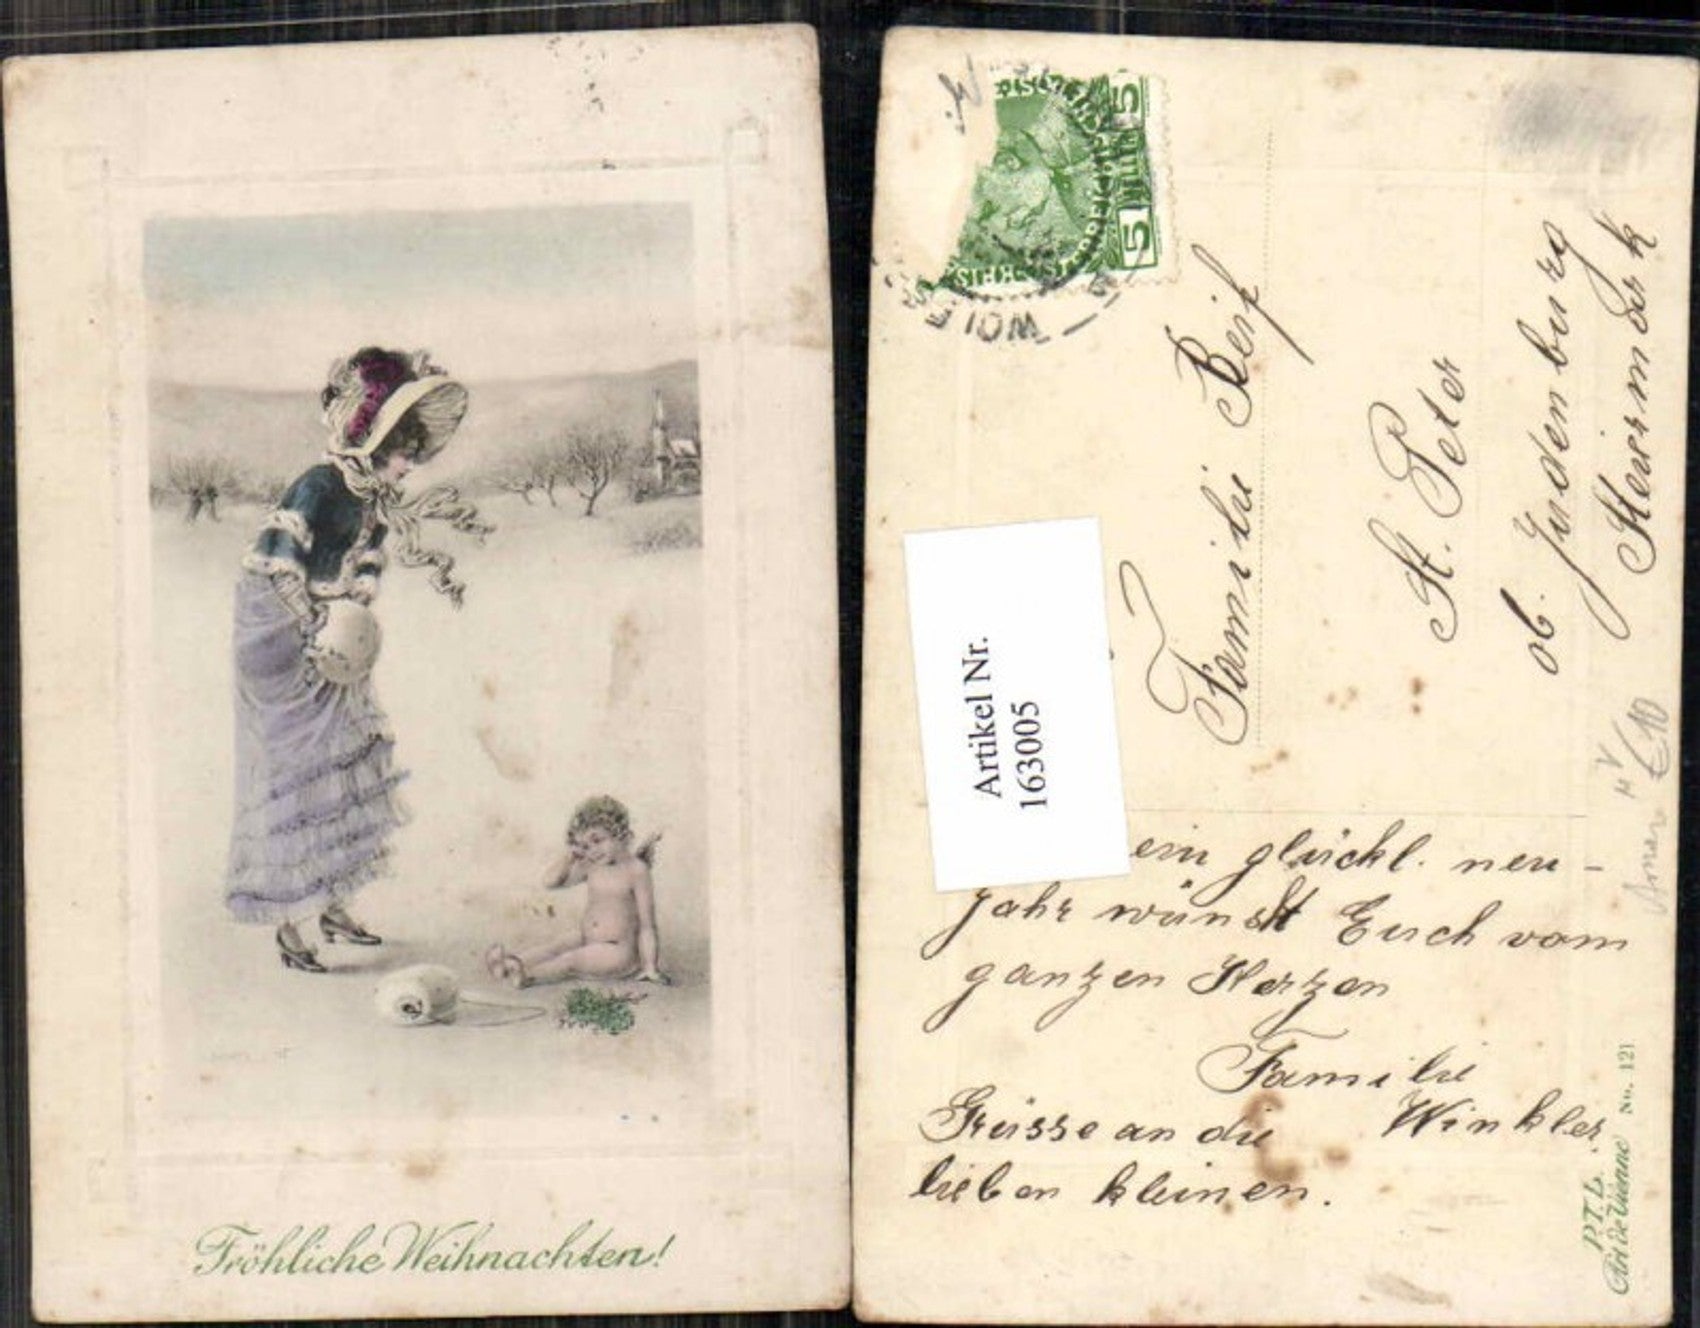 Fröhliche Weihnachten!
5 5
Familie Reif
St. Peter
ob. Judenburg
Steiermark
Artikel Nr.
163005
ein glückl. neu-
jahr wünscht Euch vom
ganzen Herzen
Familie
Winkler
Grüsse an die
lieben kleinen.
P.T.L.
Art de Vienne No. 121
€ 10